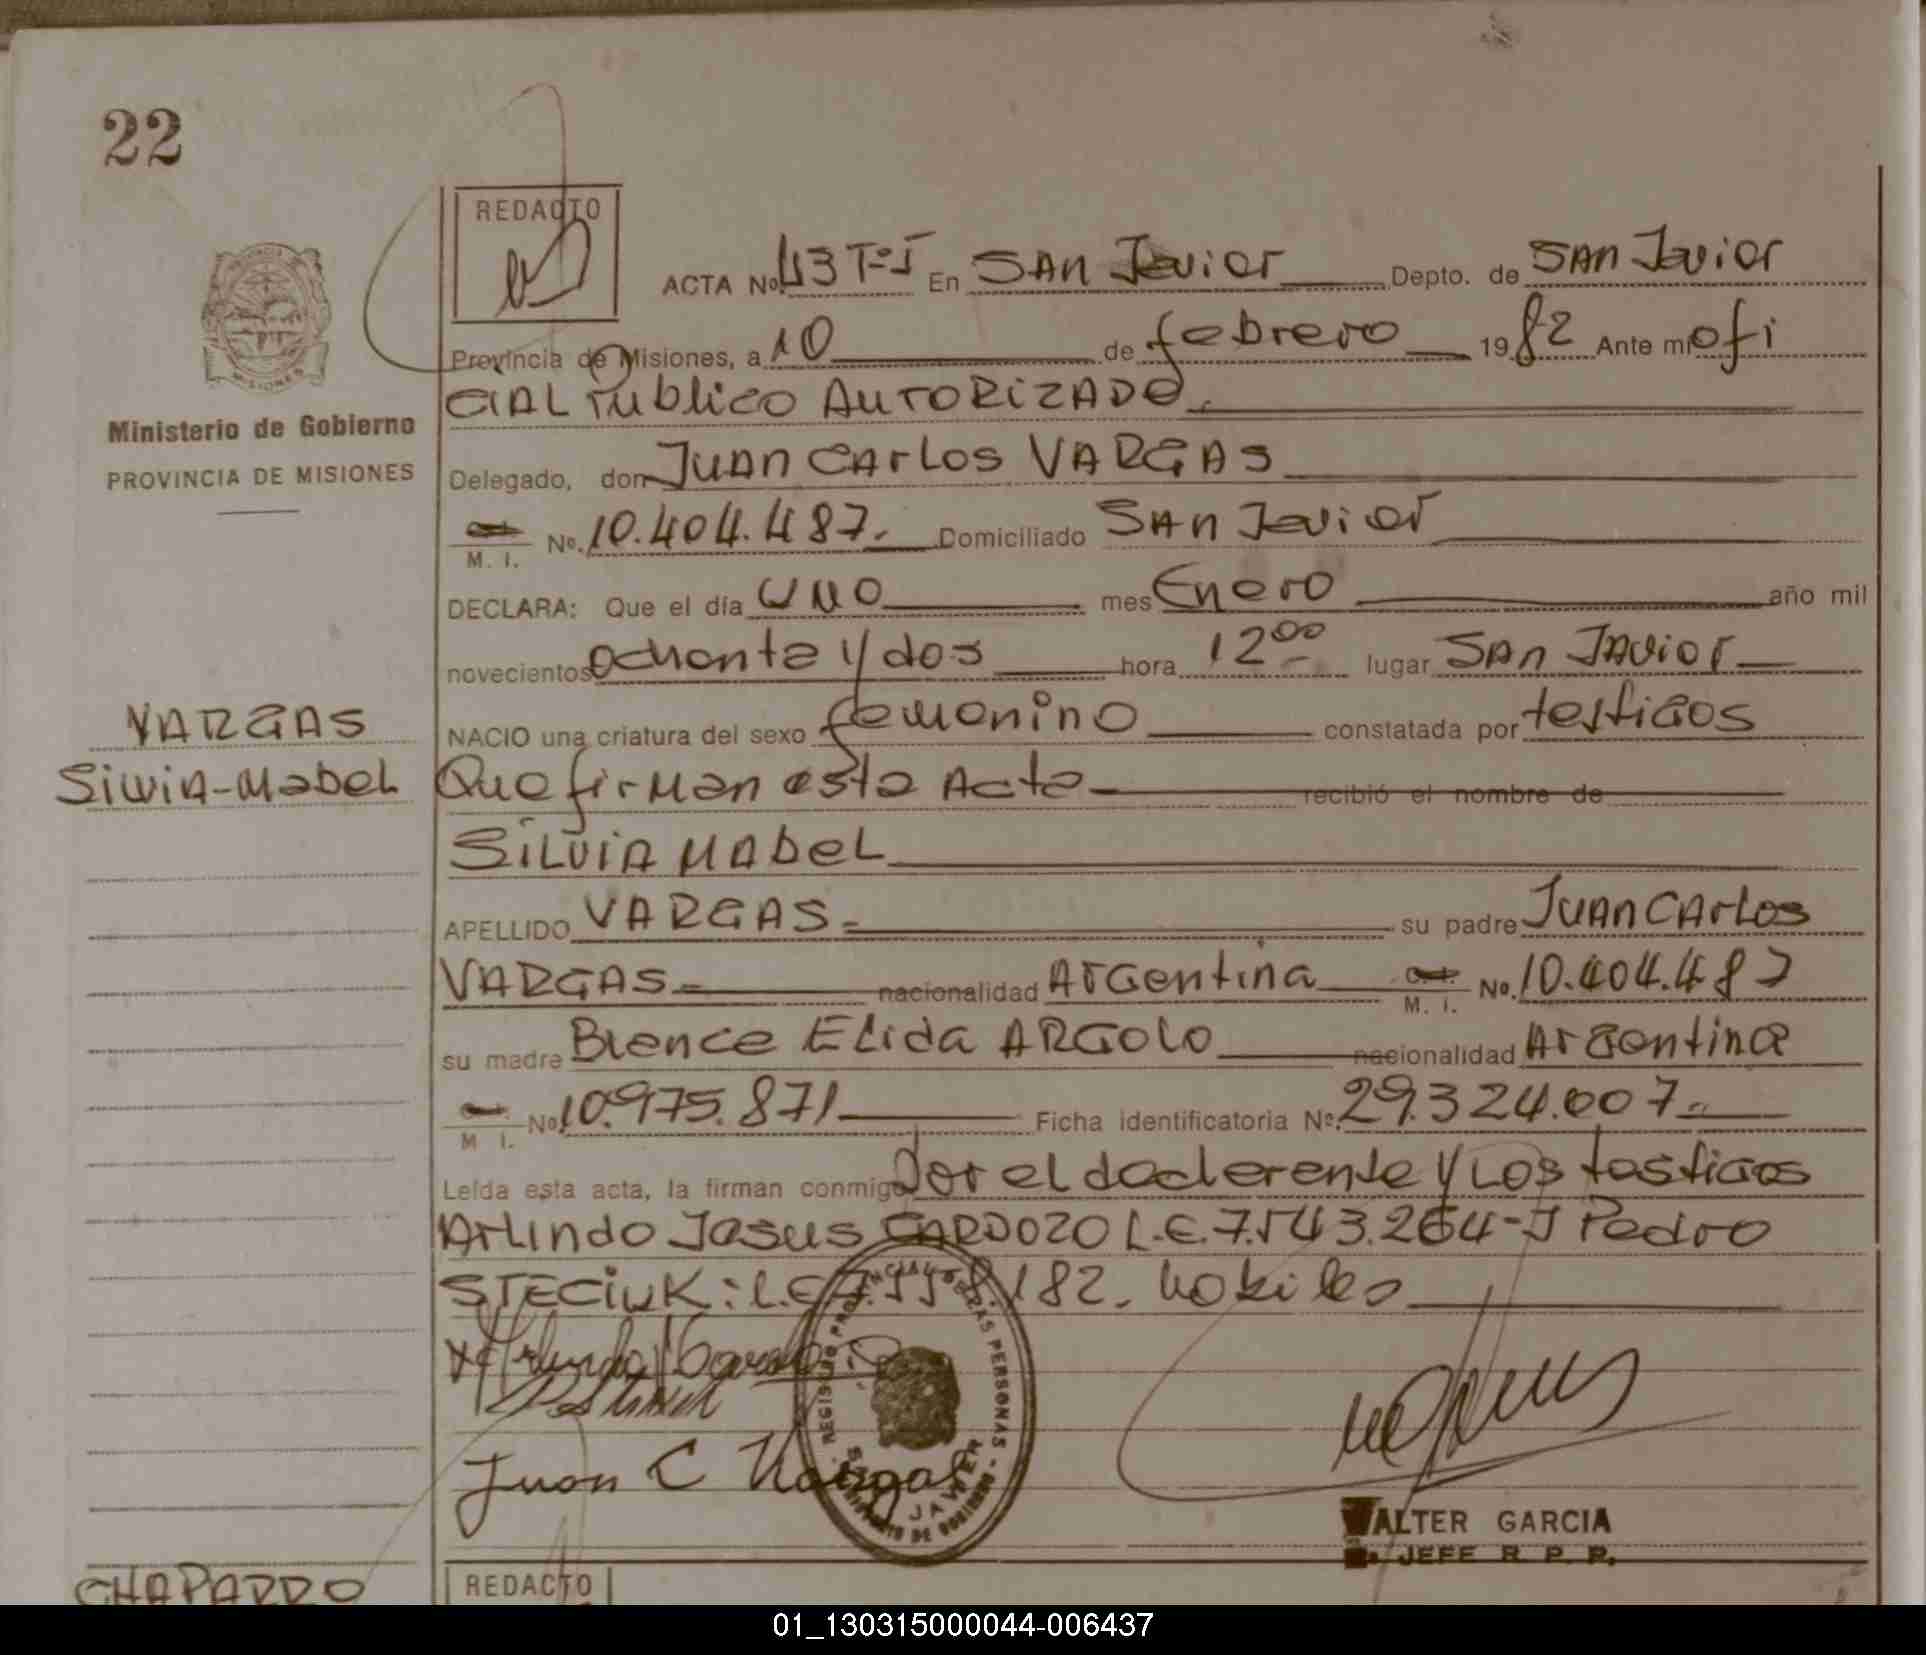 22
REDACTO
ACTA No. 43 Tº I En SAN Javier Depto. de SAN Javier
Provincia de Misiones, a 10 de febrero 1982 Ante mi ofi
CIAL Publico AUTORIZADO.
Ministerio de Gobierno
PROVINCIA DE MISIONES
Delegado, don JUAN CARLOS VARGAS
M. I. No. 10.404.487. Domiciliado SAN Javier
DECLARA: Que el día UNO mes Enero año mil
novecientos ochenta y dos hora 12 00 lugar SAN JAVIer
NACIO una criatura del sexo femenino constatada por testigos
VARGAS
Silvia-Mabel
Que firman esta Acta recibió el nombre de
SILVIA MABEL
APELLIDO VARGAS su padre JUAN CARLOS
VARGAS nacionalidad Argentina M. I. No. 10.404.487
su madre Blanca Elida ARGOLO nacionalidad Argentina
M I. No. 10.975.871 Ficha identificatoria No. 29.324.007
Leída esta acta, la firman conmigo por el declarante y Los testigos
Arlindo Jesus CARDOZO L.E. 7.543.264-I Pedro
STECIUK: L.E. 182. habiles
Juan C Vargas
REGISTRO PROVINCIAL DE LAS PERSONAS
SAN JAVIER
WALTER GARCIA
JEFE R. P. P.
CHAPARRO
REDACTO
01_130315000044-006437